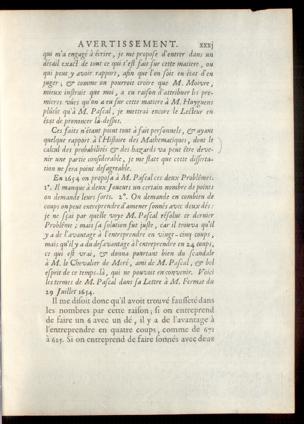 AVERTISSEMENT. xxxj
qui m'a engagé à écrire, je me propose d'entrer dans un
détail exact de tout ce qui s'est fait sur cette matiere, ou
qui peut y avoir rapport, afin que l'on soit en état d'en
juger, & comme on pourroit croire que M. Moivre,
mieux instruit que moi, a eu raison d'attribuer les pre-
mieres vûes qu'on a eu sur cette matiere à M. Huygens
plûtôt qu'à M. Pascal, je mettrai encore le Lecteur en
état de prononcer là-dessus.
Ces faits n'étant point tout à fait personnels, & ayant
quelque rapport à l'Histoire des Mathematiques, dont le
calcul des probabilités & des hazards va peut être deve-
nir une partie considerable, je me flate que cette disserta-
tion ne sera point desagreable.
En 1654 on proposa à M. Pascal ces deux Problêmes.
1°. Il manque à deux Joueurs un certain nombre de points
on demande leurs sorts. 2°. On demande en combien de
coups on peut entreprendre d'amener sonnés avec deux dés:
je ne sçai par quelle voye M. Pascal résolut ce dernier
Problême; mais sa solution fut juste, car il trouva qu'il
y a de l'avantage à l'entreprendre en vingt-cinq coups,
mais qu'il y a du desavantage à l'entreprendre en 24 coups,
ce qui est vrai, & donna pourtant bien du scandale
à M. le Chevalier de Meré, ami de M. Pascal, & bel
esprit de ce temps-là, qui ne pouvoit en convenir. Voici
les termes de M. Pascal dans sa Lettre à M. Fermat du
29 Juillet 1654.
Il me disoit donc qu'il avoit trouvé fausseté dans
les nombres par cette raison; si on entreprend
de faire un 6 avec un dé, il y a de l'avantage à
l'entreprendre en quatre coups, comme de 671
à 625. Si on entreprend de faire sonnés avec deux